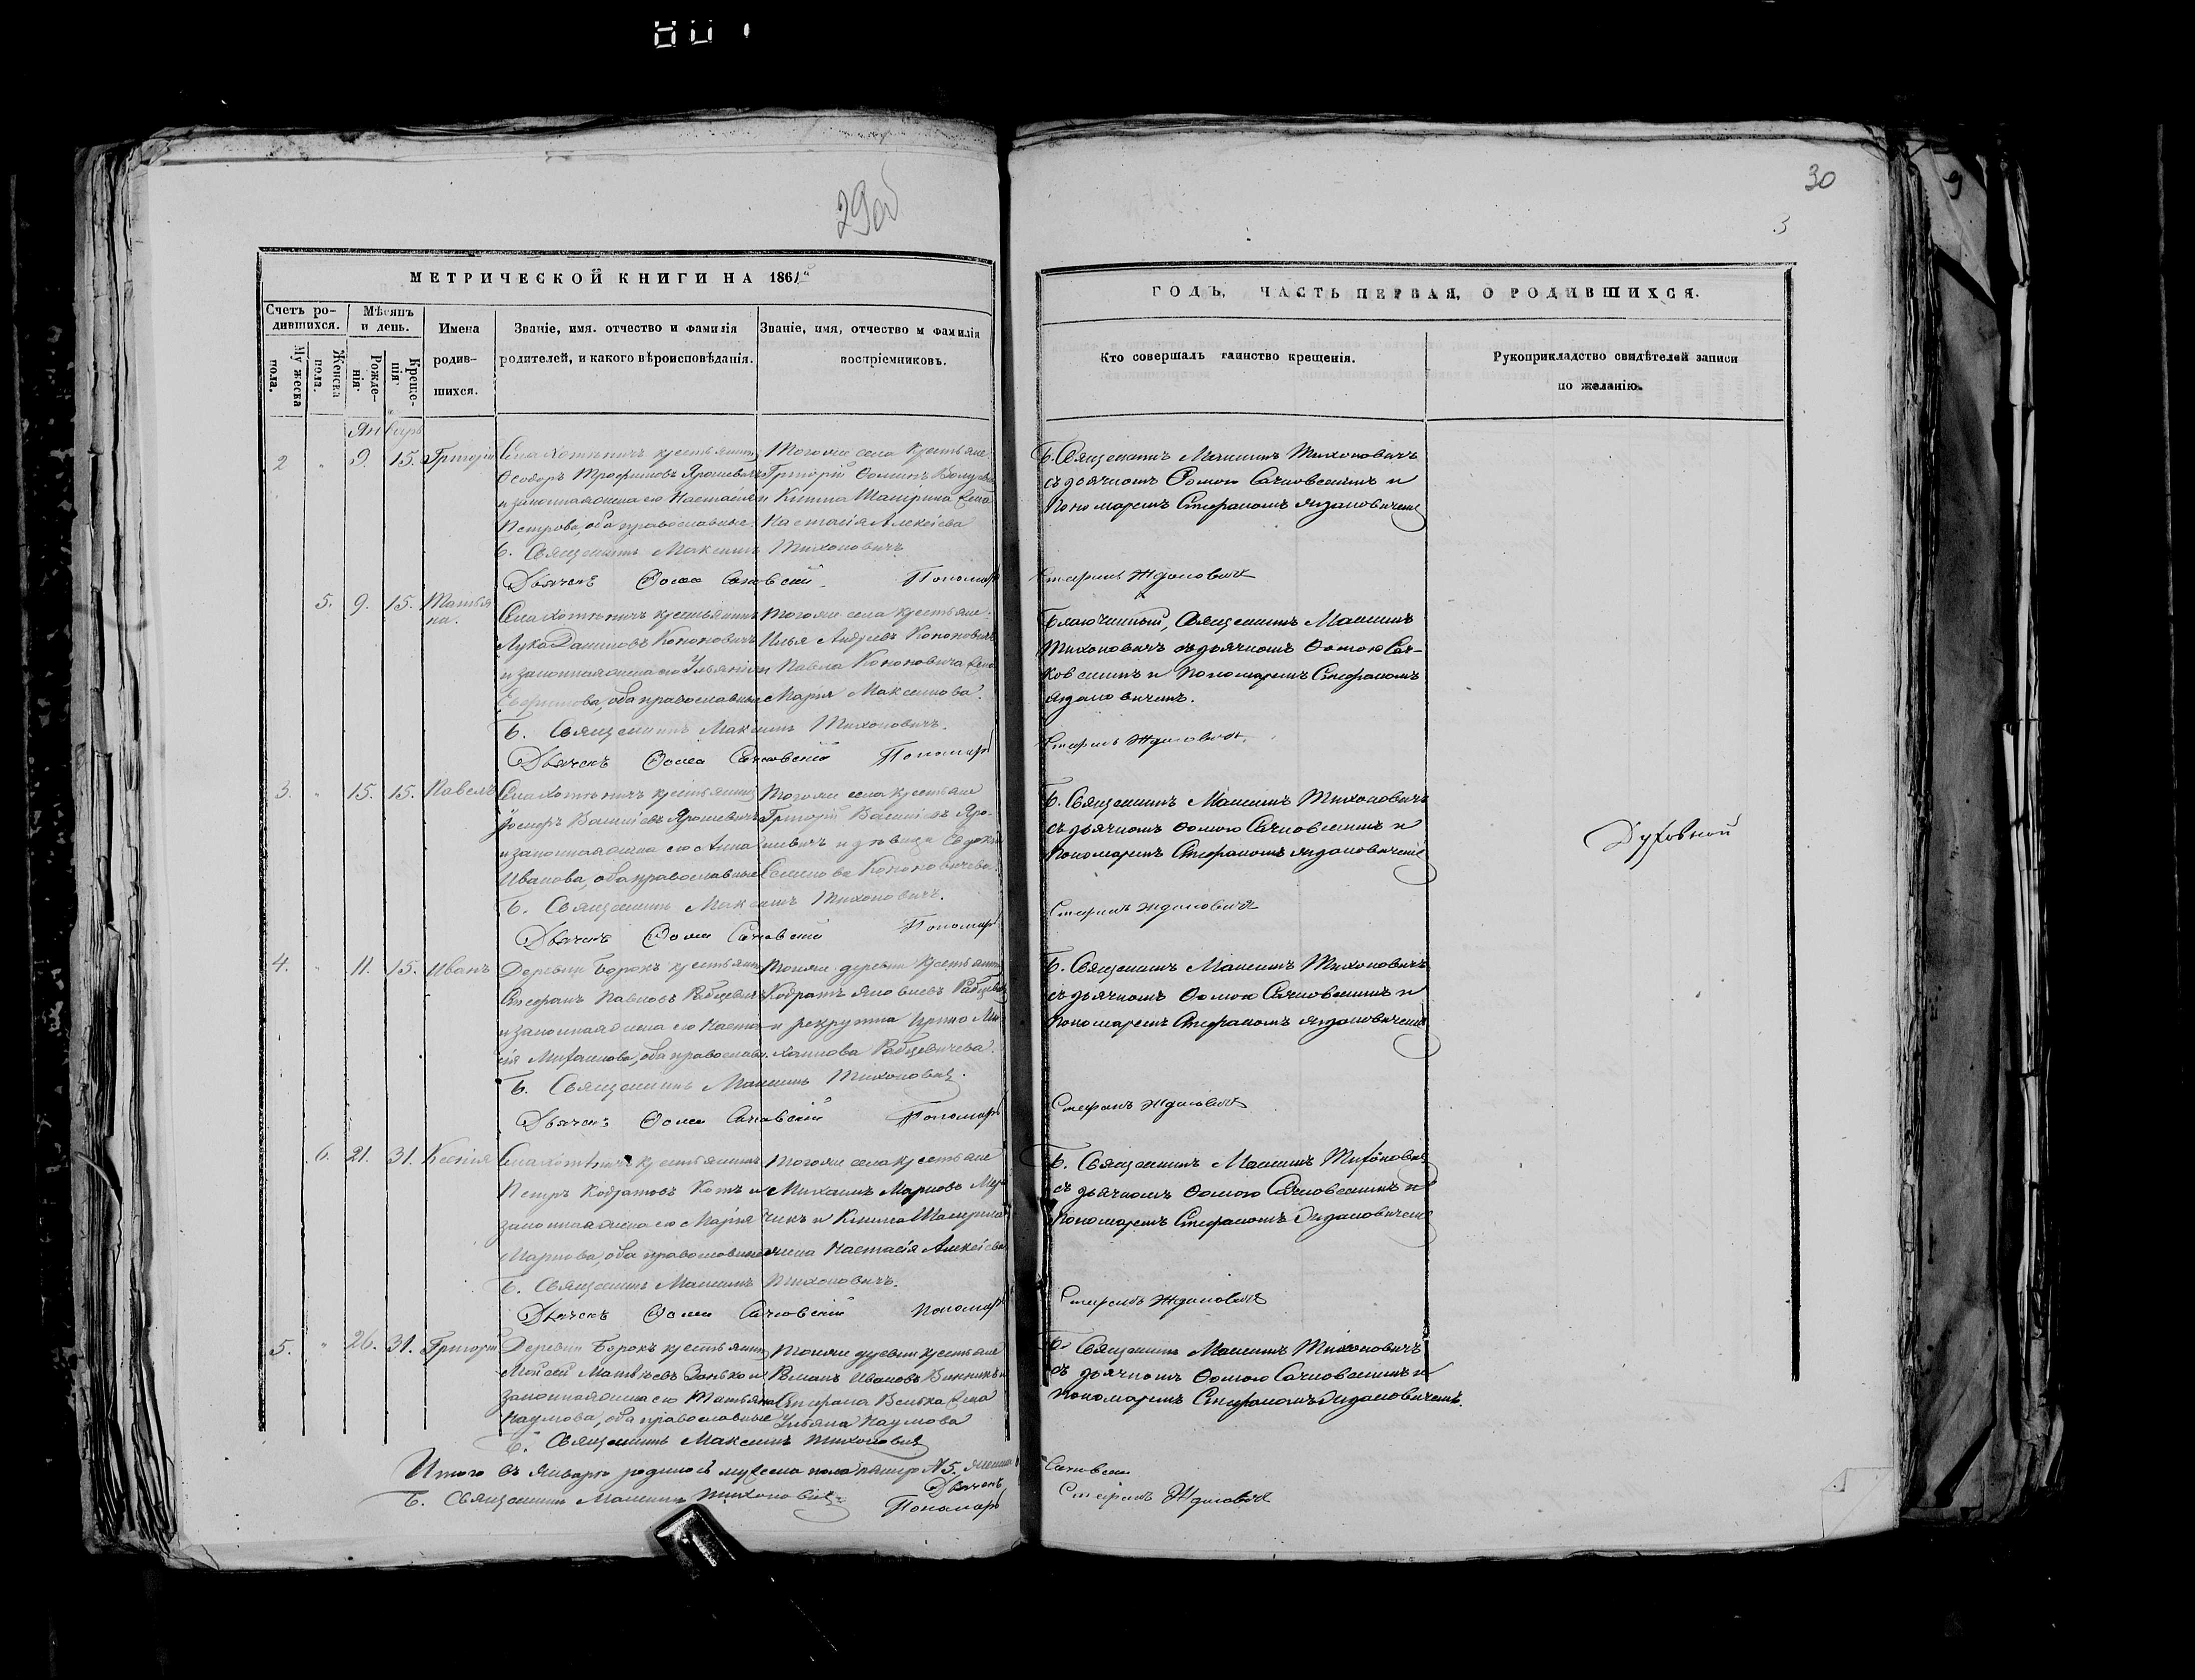 801
29об
30
3
МЕТРИЧЕСКОЙ КНИГИ НА 1861й
ГОДЪ, ЧАСТЬ ПЕРВАЯ, О РОДИВШИХСЯ.
Счетъ родившихся.
Мужеска пола.
Женска пола.
Мѣсяцъ и день.
Рожденія.
Крещенія.
Имена родившихся.
Званіе, имя. отчество и фамилія
родителей, и какого вѣроисповѣданія.
Званіе, имя, отчество и фамилія
воспріемниковъ.
Кто совершалъ таинство крещенія.
Рукоприкладство свидѣтелей записи
по желанію.
Январь
2 " 9. 15. Григорій
Села Хотыничъ крестьянинъ
Ѳеодоръ Трофимовъ Ярошевичъ
и законная жена его Настасія
Петрова, оба православные.
Тогоже села крестьяне
Григорій Ѳоминъ
Настасія Алексѣева
Б. Священникъ Максимъ Тихоновичъ
съ дьячкомъ Ѳомою Сачковскимъ и
пономаремъ Стефаномъ Ждановичемъ
Б. Священникъ Максимъ Тихоновичъ
Дьячекъ Ѳома Сачковскій Пономарь Стефанъ Ждановичъ
5. 9. 15. Татьяна.
Села Хотыничъ крестьянинъ
Лука Даниловъ Кононовичъ
и законная жена его Ульянія
оба православные
Тогоже села крестьяне
Илья Андреевъ Кононовичъ
и Павла Кононовича жена
Марія Максимова.
Благочинный, Священникъ Максимъ
Тихоновичъ съ дьячкомъ Ѳомою Сач-
ковскимъ и пономаремъ Стефаномъ
Ждановичемъ.
Б. Священникъ Максимъ Тихоновичъ.
Дьячекъ Ѳома Сачковскій Пономарь Стефанъ Ждановичъ
3. " 15. 15. Павелъ
Села Хотыничъ крестьянинъ
Іосифъ Васильевъ Ярошевичъ
и законная жена его Анна
Иванова, оба православные
Тогоже села крестьяне
Григорій Васильевъ Яро-
шевичъ и дѣвица
Семенова Кононовичева.
Б. Священникъ Максимъ Тихоновичъ
съ дьячкомъ Ѳомою Сачковскимъ и
пономаремъ Стефаномъ Ждановичемъ
Духовной
Б. Священникъ Максимъ Тихоновичъ.
Дьячекъ Ѳома Сачковскій Пономарь Стефанъ Ждановичъ
4. " 11. 15. Иванъ
Деревни Борокъ крестьянинъ
Стефанъ Павловъ Рабцевичъ
и законная жена его Наста-
сія Михайлова, оба православн.
Тоя же деревни крестьянинъ
Кодратъ Яковлевъ Рабцевичъ
и рекрутка Ирина Ми-
хайлова Рабцевичева.
Б. Священникъ Максимъ Тихоновичъ
съ дьячкомъ Ѳомою Сачковскимъ и
пономаремъ Стефаномъ Ждановичемъ
Б. Священникъ Максимъ Тихоновичъ.
Дьячекъ Ѳома Сачковскій Пономарь Стефанъ Ждановичъ
6. 21. 31. Ксенія
Села Хотыничъ крестьянинъ
Петръ Кодратовъ Котъ и
законная жена его Марія
Маркова, оба православные
Тогоже села крестьяне
Михаилъ Марковъ
жена Настасія Алексѣева
Б. Священникъ Максимъ Тихоновичъ
съ дьячкомъ Ѳомою Сачковскимъ и
пономаремъ Стефаномъ Ждановичемъ
Б. Священникъ Максимъ Тихоновичъ.
Дьячекъ Ѳома Сачковскій Пономарь Стефанъ Ждановичъ
5. " 26. 31. Григорій
Деревни Борокъ крестьянинъ
Мойсей Матвѣевъ Занько и
законная жена его Татьяна
Наумова, оба православные
Тоя же деревни крестьяне
Романъ Ивановъ
Стефана Велька жена
Ульяна Наумова
Б. Священникъ Максимъ Тихоновичъ
съ дьячкомъ Ѳомою Сачковскимъ и
пономаремъ Стефаномъ Ждановичемъ.
Б. Священникъ Максимъ Тихоновичъ
Итого въ Январѣ родилось мужеска пола № 5.
Б. Священникъ Максимъ Тихоновичъ
Дьячекъ Сачковскій
Пономарь Стефанъ Ждановичъ